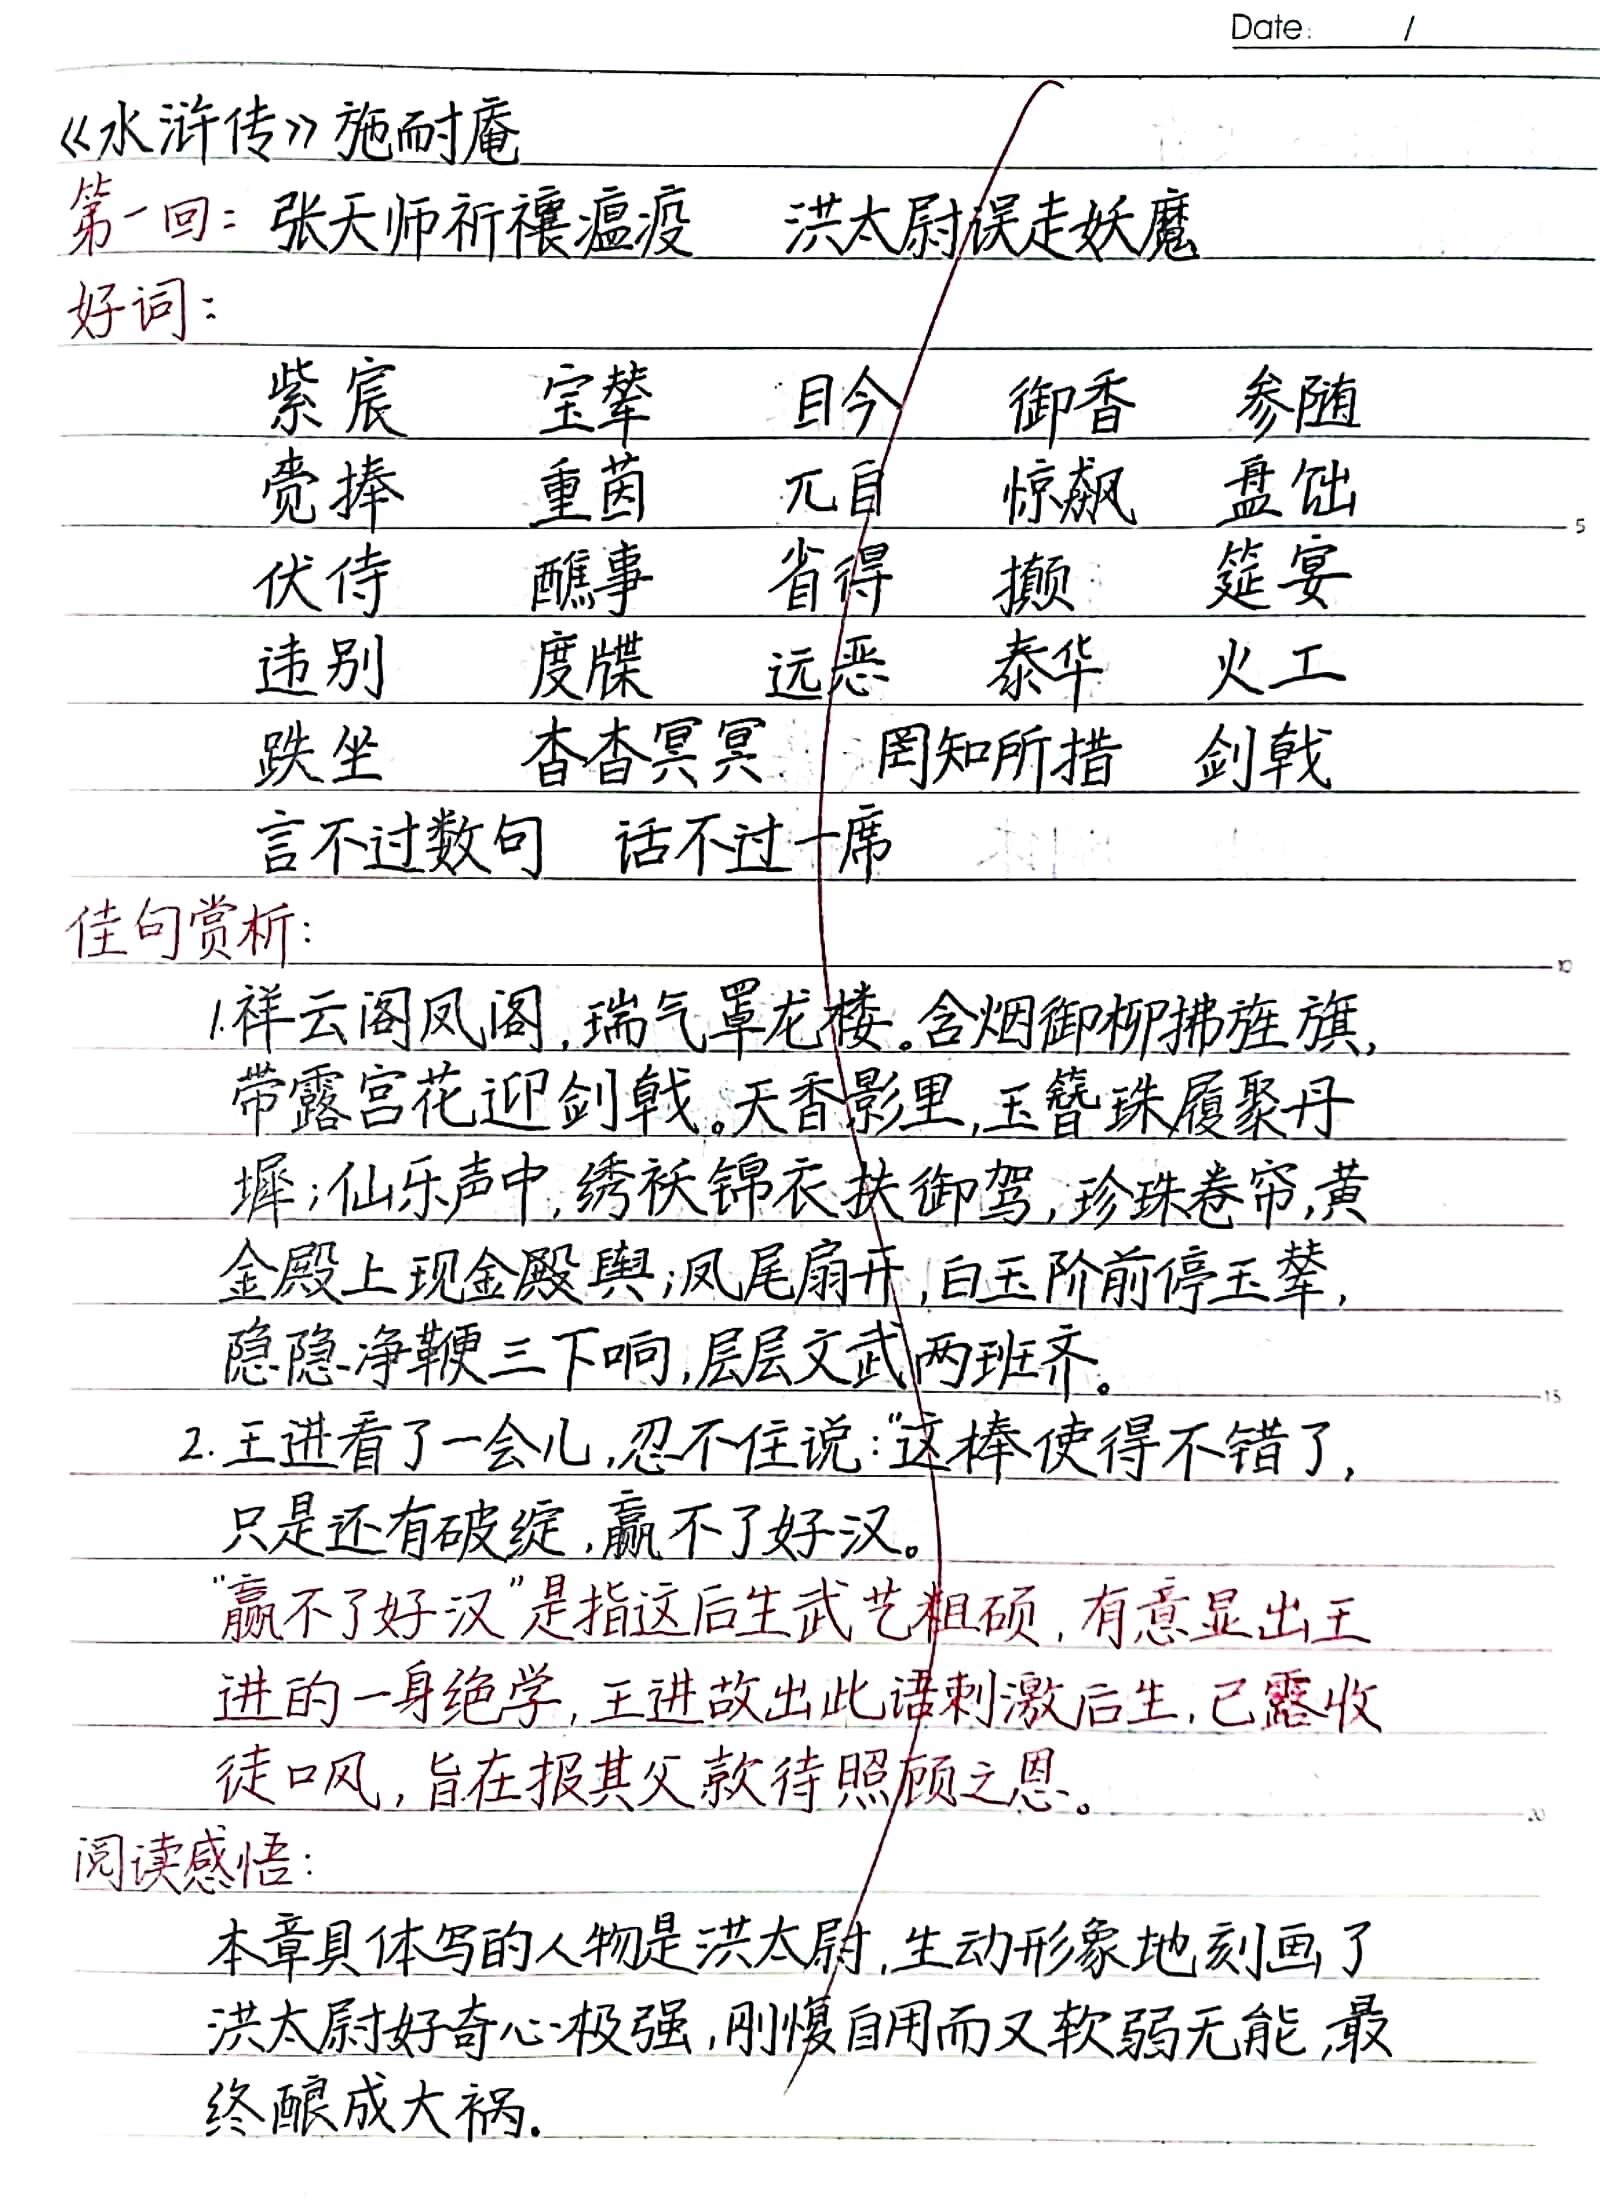 Date: /
《水浒传》施耐庵
第一回：张天师祈禳瘟疫 洪太尉误走妖魔
好词：
紫宸 宝辇 目今 御香 参随
赍捧 重茵 兀自 惊飙 盘饳
伏侍 醮事 省得 攧 筵宴
违别 度牒 远恶 泰华 火工
跌坐 杳杳冥冥 罔知所措 剑戟
言不过数句 话不过一席
佳句赏析：
1.祥云阁凤阁，瑞气罩龙楼。含烟御柳拂旌旗，
带露宫花迎剑戟。天香影里，玉簪珠履聚丹
墀；仙乐声中，绣袄锦衣扶御驾，珍珠卷帘，黄
金殿上现金殿舆；凤尾扇开，白玉阶前停玉辇，
隐隐净鞭三下响，层层文武两班齐。
2.王进看了一会儿，忍不住说：“这棒使得不错了，
只是还有破绽，赢不了好汉。
“赢不了好汉”是指这后生武艺粗硕，有意显出王
进的一身绝学，王进故出此语刺激后生，已露收
徒口风，旨在报其父款待照顾之恩。
阅读感悟：
本章具体写的人物是洪太尉，生动形象地刻画了
洪太尉好奇心极强，刚愎自用而又软弱无能，最
终酿成大祸.
5
10
15
20